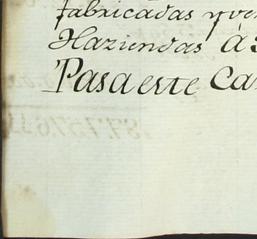 fabricadas y ven
Haziendas á
Pasa este Ca